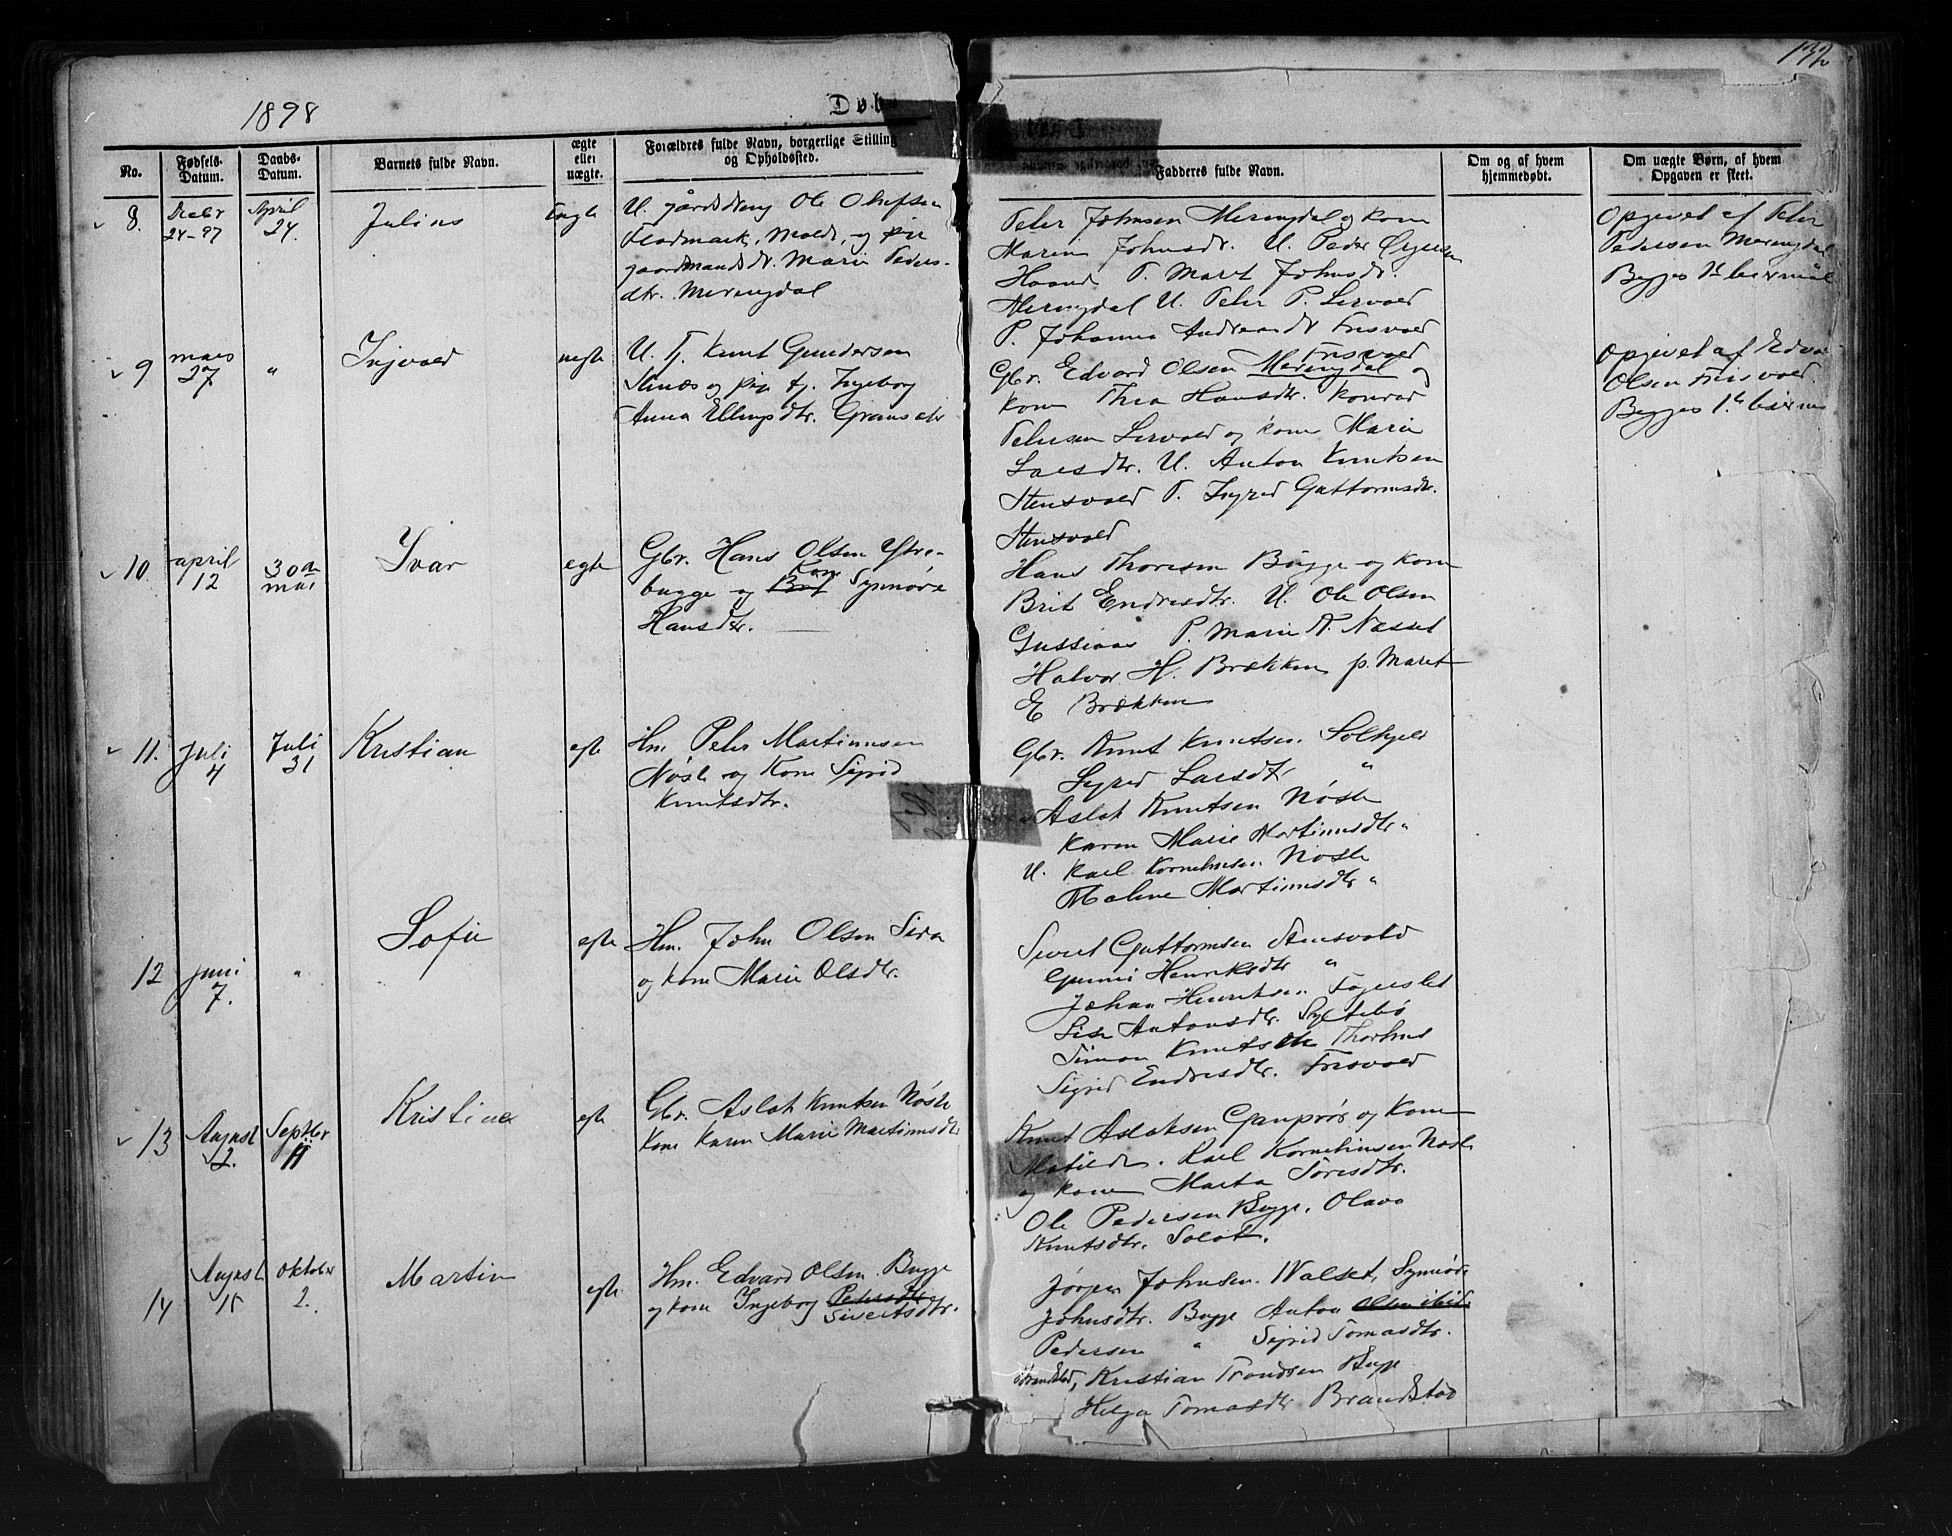 132
1898
Døb
No.
Fødsels-
Datum.
Daabs-
Datum.
Barnets fulde Navn.
ægte
eller
uægte.
Forældres fulde Navn, borgerlige Stilling
og Opholdssted.
Fadderes fulde Navn.
Om og af hvem
hjemmedøbt.
Om uægte Børn, af hvem
Opgaven er skeet.
8.
24-97
April
24.
Julius
U. Ole Olufsen
Molde, og pige
gaardmandsdt. Marie Peders-
dtr. Meringdal
Peter Johnsen Meringdal og kone
Marin Johnsdr. U. Peder
P. Marit Johnsdr.
Meringdal U. Peter P. Lervold
P. Johanna Frisvold
Opgivet af Peter
Pedersen Meringdal
Begges 1t leiermaal
9
mars
27
"
Ingvald
uegte
U. Tj. Knut Gundersen
og pige tj. Ingeborg
Anna Ellingsdtr.
Frisvold
Gbr. Edvard Olsen Meringdal og
kone Thea Hansdtr. Konrad
Petersen Lervold og kone Marie
Larsdtr. U. Anton Knutsen
Stensvold P. Ingrid Guttormsdtr.
Stensvold
Opgivet af Edva
Olsen Frisvold.
Begges 1t
10.
april
12
30te
mai
Ivar
egte
Gbr. Hans Olsen Ytre-
Kone
bugge og Brit Synnøve
Hansdtr.
Hans Thoresen Bugge og kone
Brit Endresdtr. U. Ole Olsen
Gussiaas P. Marie N. Næsset
Halvor H. Brækken p. Maret
E Brækken
11.
Juli
4
Juli
31
Kristian
egte
Hm. Peter Martinusen
Nøste og Kone Sigrid
Knutsdtr.
Gbr. Knut Knutsen Solhjell
Sigrid Larsdtr "
Aslak Knutsen Nøste
Karen Marie Martinusdtr "
U. Karl Korneliusen Nøste
Martinusdtr "
12
juni
7.
"
Sofie
egte
Hm. John Olsen Sira
og kone Marie Olsdtr.
Sivert Guttormsen Stensvold
Gunni Henriksdtr "
Johan Henriksen
Lise Antonsdtr. Syltebø
Simon Knutsen Thorhus
Sigrid Endresdtr. Frisvold
13
August
12.
Septbr
11
Kristine
egte
Gbr. Aslak Knutsen Nøste
Kone Karen Marie Martinusdtr
Knut Aslaksen Ganprør og Kone
Matilde. Karl Korneliusen Nøste
og kone Marta Toresdtr.
Ole Pedersen Bugge, Olava
Knutsdtr.
14
August
15
Oktober
2.
Martin
egte
Hm. Edvard Olsen Bugge
og kone Ingeborg Petersdtr
Sivertsdtr.
Jørgen Johnsen Walset, Synnøve
Johnsdtr. Bugge Anton Olsen
Pedersen " Sigrid Tomasdtr.
Brandstad, Kristian Trondsen Bugge
Helga Tomasdtr Brandstad